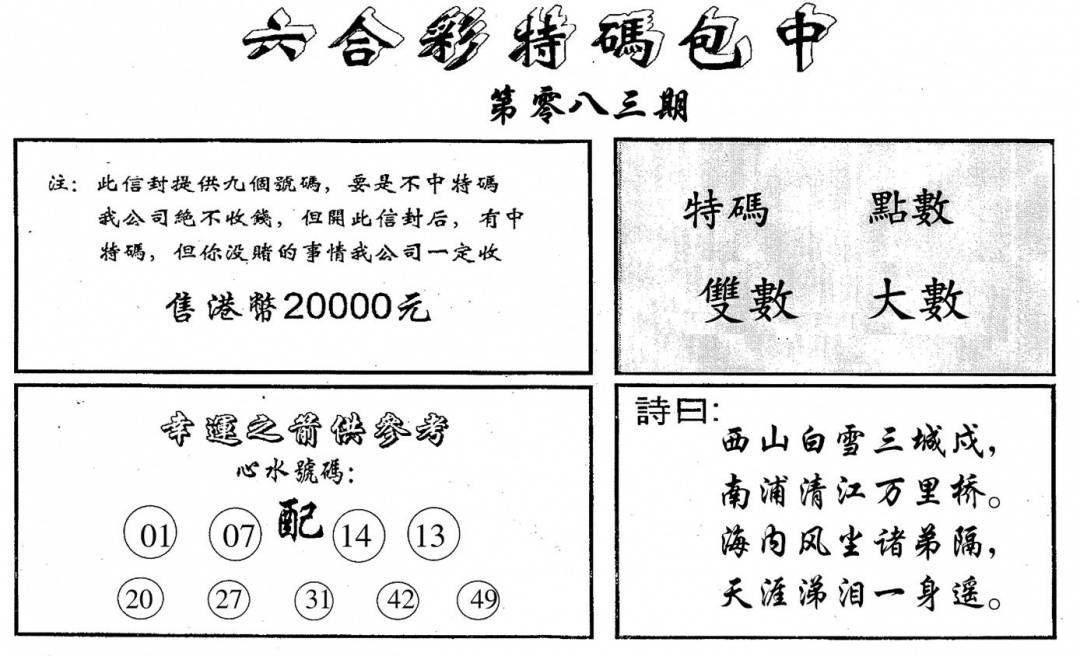 六合彩特碼包中
第零八三期
注：此信封提供九個號碼，要是不中特碼
我公司絕不收錢，但開此信封后，有中
特碼，但你没賭的事情我公司一定收
售港幣20000元
特碼 點數
雙數 大數
幸運之箭供參考
心水號碼：
配
01 07 14 13
20 27 31 42 49
詩曰：
西山白雪三城戍，
南浦清江万里桥。
海内风尘诸弟隔，
天涯涕泪一身遥。